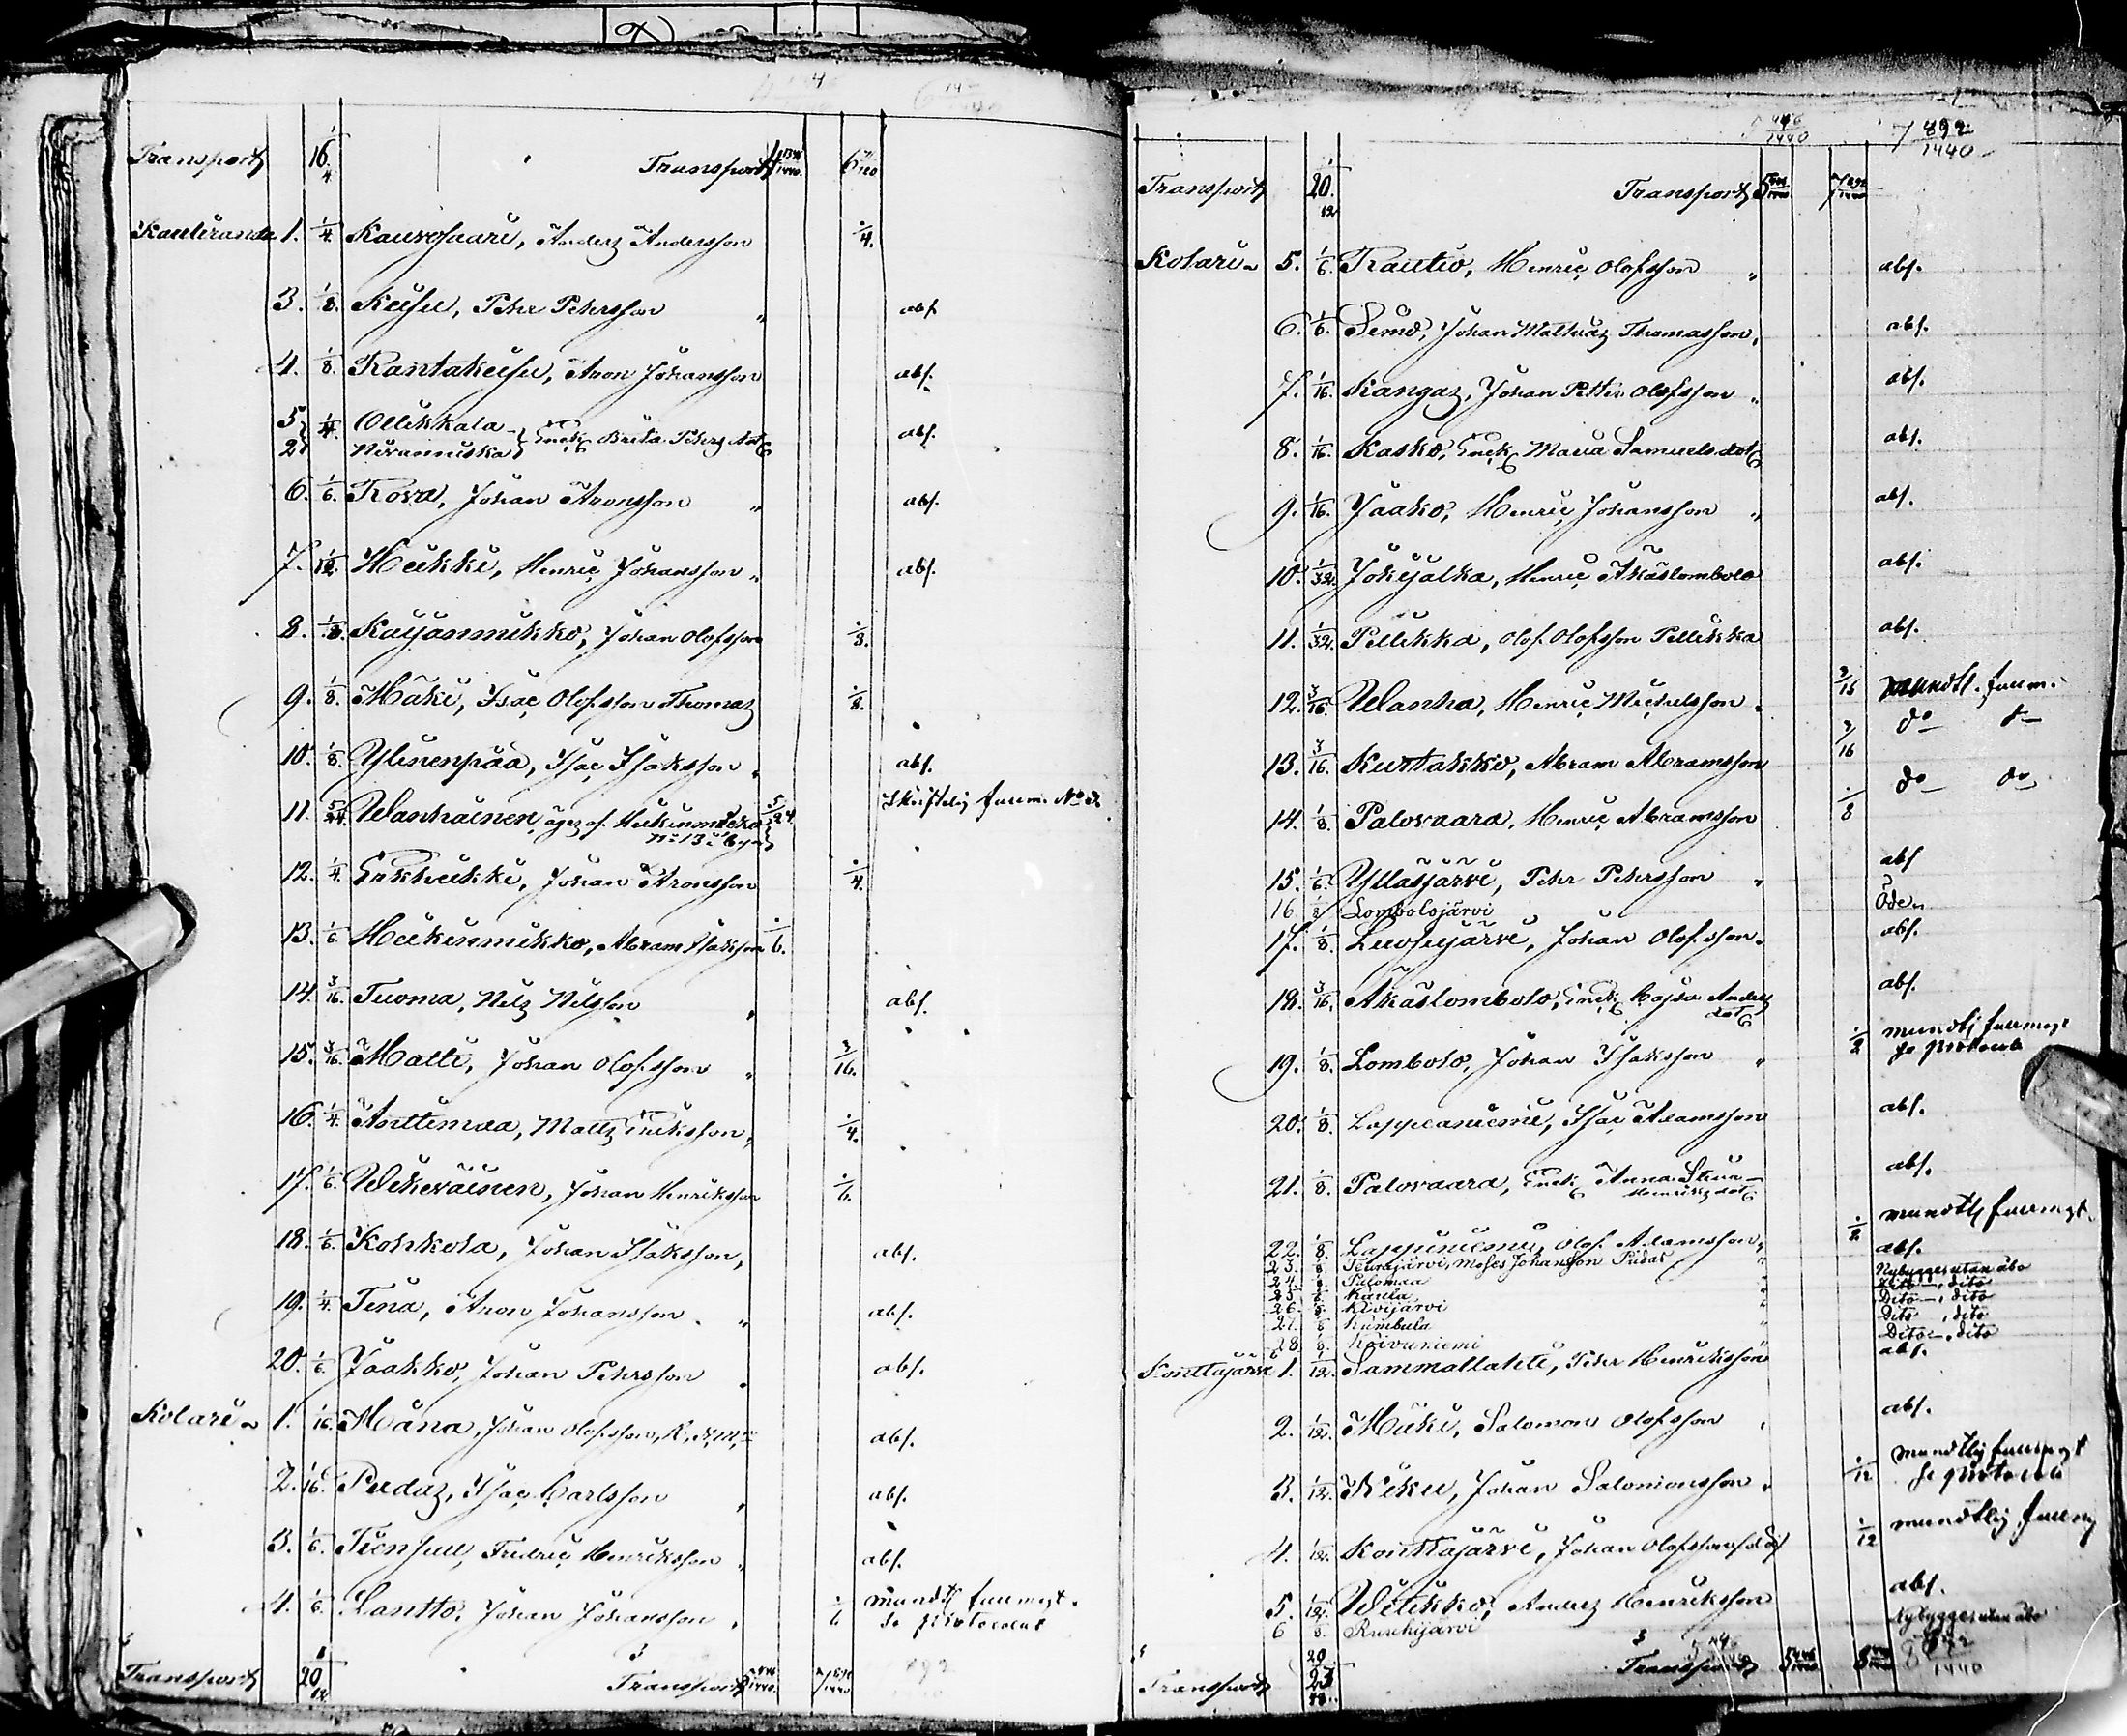 Transport 16 1/4 Transport
Kautiranda 1. 1/4. Kauvosaari, Anders Andersson 1/4.
3. 1/8. Keisu, Pehr Pehrsson " abs.
4. 1/8. Rantakeisu, Aron Johansson abs.
5 2 1/4. Ollikkala Nivanniska Enck. Brita Pehrs dotr abs.
6. 1/6. Rova, Johan Aronsson " abs.
7. 1/12. Heikki, Henric Johansson " abs.
8. 1/3. Kaijanmikko, Johan Olofsson 1/3.
9. 1/8. Mäki, Isac Olofsson Thomas 1/8.
10. 1/8. Ylinenpää, Isac Isaksson " abs.
11. 5/24. Wanhainen, äges af Heikinmikko No 13 i byn 5/24 Skriftelig fullm. No 2
12. 1/4. Erkheikki, Johan Aronsson 1/4.
13. 1/6. Heikinmikko, Abram Isaksson 1/6.
14. 3/16. Tuoma, Nils Nilsson " abs.
15. 3/16. Matti, Johan Olofsson " 3/16.
16. 1/4. Anttimaa, Matts Eriksson " 1/4.
17. 1/6. Wikeväinen, Johan Henriksson 1/6.
18. 1/6. Kohkola, Johan Isaksson " abs.
19. 1/4. Tina, Aron Johansson " abs.
20. 1/6. Jaakko, Johan Pehrsson " abs.
Kolari 1. 1/16. Mäna, Johan Olofsson, abs.
2. 1/16. Pudas, Isac Carlsson " abs.
3. 1/6. Tiensuu, Fredric Henriksson " abs.
4. 1/6. Lantto, Johan Johansson " 1/6 mundtl. fullmgt. se protocollet
Transport 20 1/12 Transport
5 446/1440 7 892/1440
Transport 20. 1/12 Transport
Kolari 5. 1/6. Rautio, Henric Olofsson " abs.
6. 1/6. Simo, Johan Mathias Thomasson " abs.
7. 1/16. Kangas, Johan Petter Olofsson " abs.
8. 1/16. Kasko, Enck. Maria Samuels dotr abs.
9. 1/16. Jaako, Henric Johansson " abs.
10. 1/32. Jokijalka, Henric Äkäslombolo abs.
11. 1/32. Pellikka, Olof Olofsson Pellikka abs.
12. 3/16. Wanha, Henric Michelsson " 3/16 mundtl. fullm.
13. 3/16. Kurtakko, Abram Abramsson 3/16 do do
14. 1/8. Palovaara, Henric Abramsson 1/8 do do
15. 1/6. Ylläsjärvi, Pehr Pehrsson " abs
16 1/8 Lombolojärvi Öde
17. 1/8. Luosujärvi, Johan Olofsson " abs.
18. 3/16. Äkäslombolo, Enck. Cajsa Anders dotr abs.
19. 1/8. Lombolo, Johan Isaksson " 1/2 mundtl fullmgt se protocoll
20. 1/8. Lappeaniemi, Isac Adamsson abs.
21. 1/8. Palovaara, Enck. Anna Stina Henriks dotr abs.
22. 1/8. Lappiniemi, Olof Adamsson " 1/2 mundtl fullmgt.
23. 1/8. Teurajärvi, Moses Johansson Pudas " abs.
24. 1/8. Pilomaa " Nybygges utan åbo
25. 1/8. Kaula " Dito, dito
26. 1/8. Kivijärvi " Dito, dito
27. 1/8. Kumbula " Dito, dito
28 1/8. Koivuniemi " Dito, dito
Konttajärvi 1. 1/12. Sammallahti, Pehr Henriksson abs.
2. 1/12. Mäki, Salomon Olofsson " abs.
3. 1/12. Niku, Johan Salomonsson " 1/12 mundtlig fullmgt se protocoll
4. 1/12. Konttajärvi, Johan Olofsson 1/12 mundtlig fullmg
5. 1/12. Wilikko, Anders Henriksson abs.
6 1/8. Ruuhijärvi Nybygges utan åbo
Transport 23 Transport 8 1440